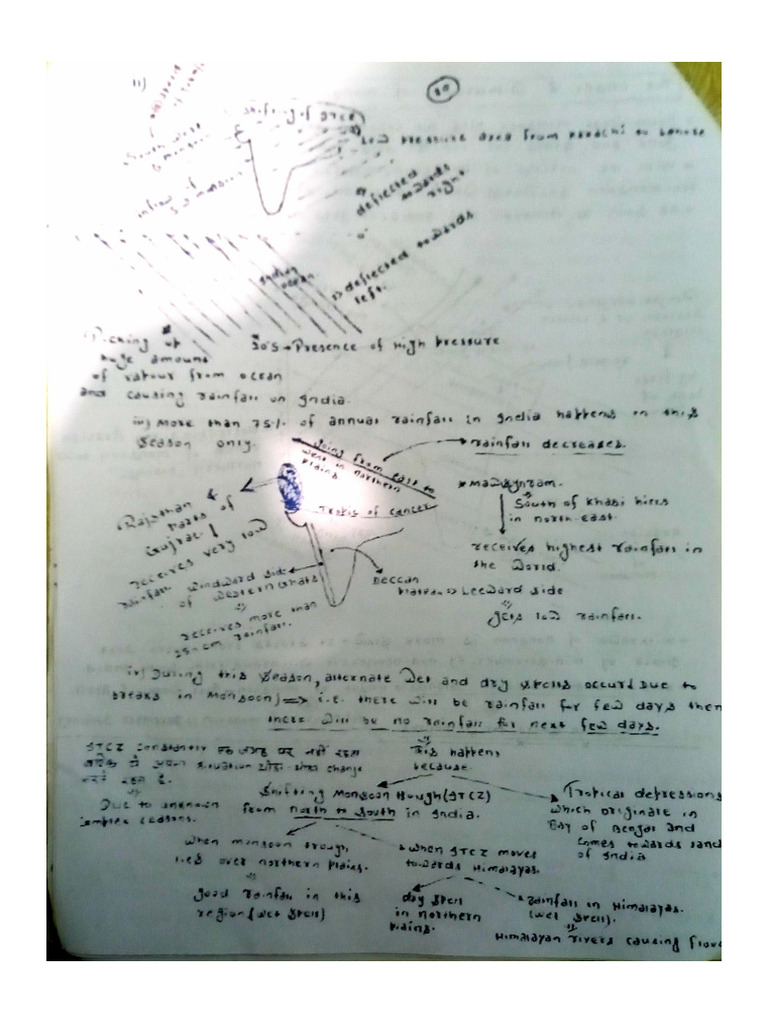 ii)
10
Shifting of ITCZ
Low pressure area from Karachi to
South west
monsoon
inflow of
S.W monsoon
deflected
towards
right.
Indian
ocean
deflected towards
left.
Picking up
huge amounts
of vapour from ocean
and causing rainfall on India.
30°S → Presence of High Pressure
iii) More than 75% of annual rainfall in India happens in this
season only.
Going from east to
west in northern
plains
rainfall decreases.
Tropic of cancer
* Mawsynram.
South of Khasi hills
in north-east.
receives highest rainfall in
the world.
Rajasthan
parts of
Gujrat
receives very low
rainfall
windward side
of western ghats
receives more than
25-cm rainfall.
Deccan
plateau => Leeward side
gets low rainfall.
iv) During this season, alternate wet and dry spells occur (Due to
breaks in Monsoon) => i.e. there will be rainfall for few days then
there will be no rainfall for next few days.
ITCZ constantly एक जगह पर नहीं रहता
बल्कि ये अपना situation थोड़ा थोड़ा change
करते रहता है.
Due to unknown
complex reasons.
This happens
because.
Shifting Monsoon trough (ITCZ)
from north to south in India.
Tropical depressions
which originate in
Bay of Bengal and
comes towards land
of India
When monsoon trough
lies over northern plains.
good rainfall in this
region (wet spell)
When ITCZ moves
towards Himalayas.
dry spell
in northern
plains.
rainfall in Himalayas.
(wet spell).
Himalayan rivers causing flood